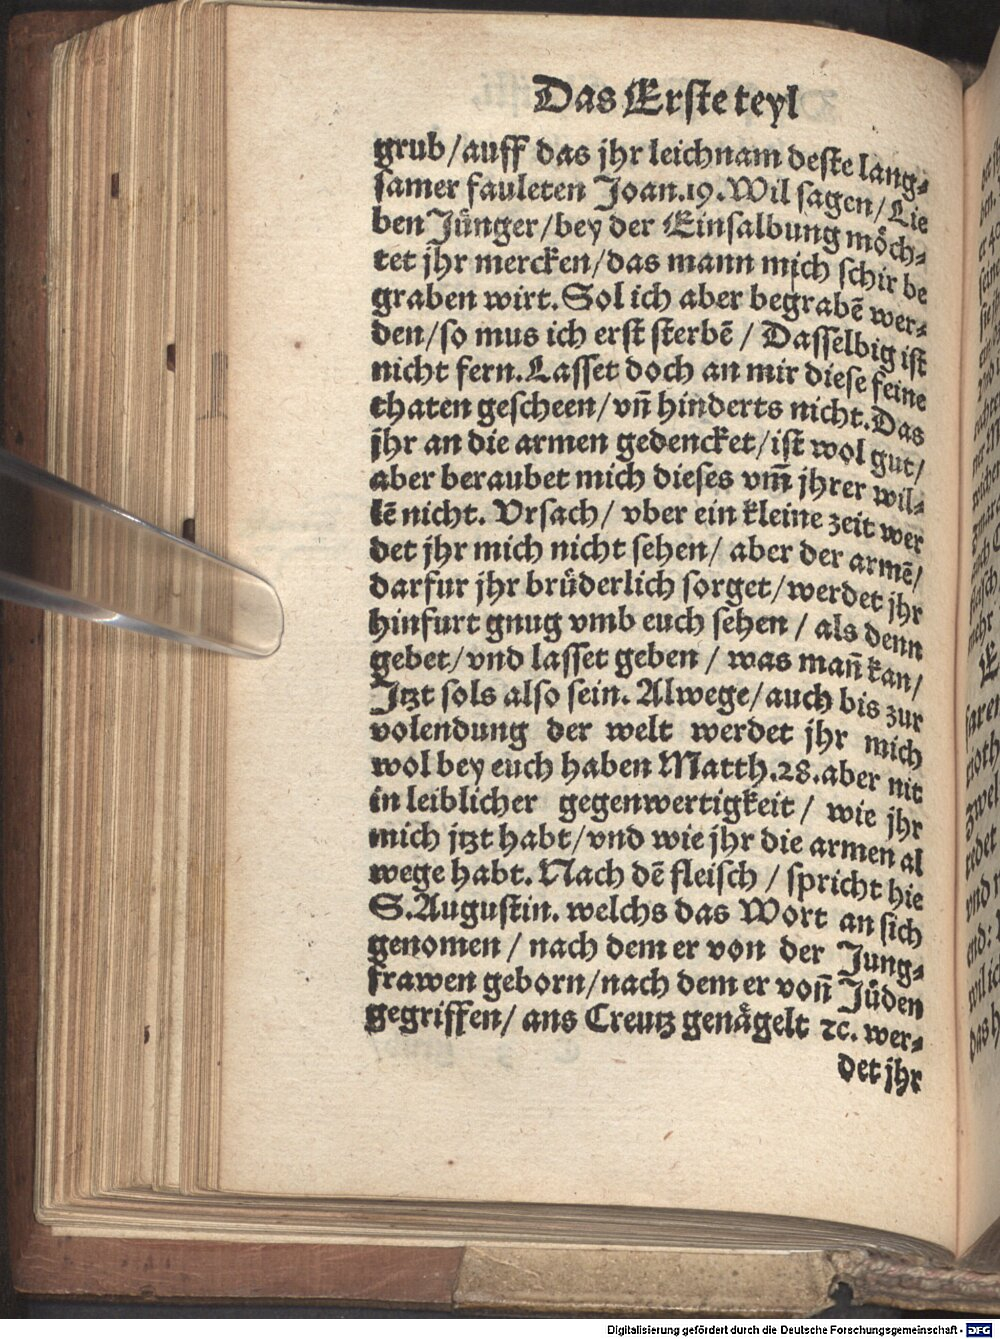 Das Erste teyl
grub/auff das jhr leichnam deste lang⸗
samer fauleten Joan.19.Wil sagen/Lie
ben Jünger/bey der Einsalbung möch⸗
tet jhr mercken/das mann mich schir be
graben wirt.Sol ich aber begrabē wer⸗
den/so mus ich erst sterbē / Dasselbig ist
nicht fern.Lasset doch an mir diese feine
thaten gescheen/vñ hinderts nicht.Das
jhr an die armen gedencket/ist wol gut/
aber beraubet mich dieses vm̄ jhrer wil⸗
lē nicht. Vrsach/ vber ein kleine zeit wer
det jhr mich nicht sehen/ aber der armē/
darfur jhr brüderlich sorget/werdet jhr
hinfurt gnug vmb euch sehen / als denn
gebet/vnd lasset geben / was mañ kan/
Jtzt sols also sein. Alwege/auch bis zur
volendung der welt werdet jhr mich
wol bey euch haben Matth.28.aber nit
in leiblicher gegenwertigkeit / wie jhr
mich jtzt habt/vnd wie jhr die armen al
wege habt. Nach dē fleisch / spricht hie
S.Augustin. welchs das Wort an sich
genomen / nach dem er von der Jung⸗
frawen geborn/nach dem er voñ Jüden
gegriffen/ ans Creutz genägelt ꝛc. wer⸗
det jhr
Digitalisierung gefördert durch die Deutsche Forschungsgemeinschaft - DFG